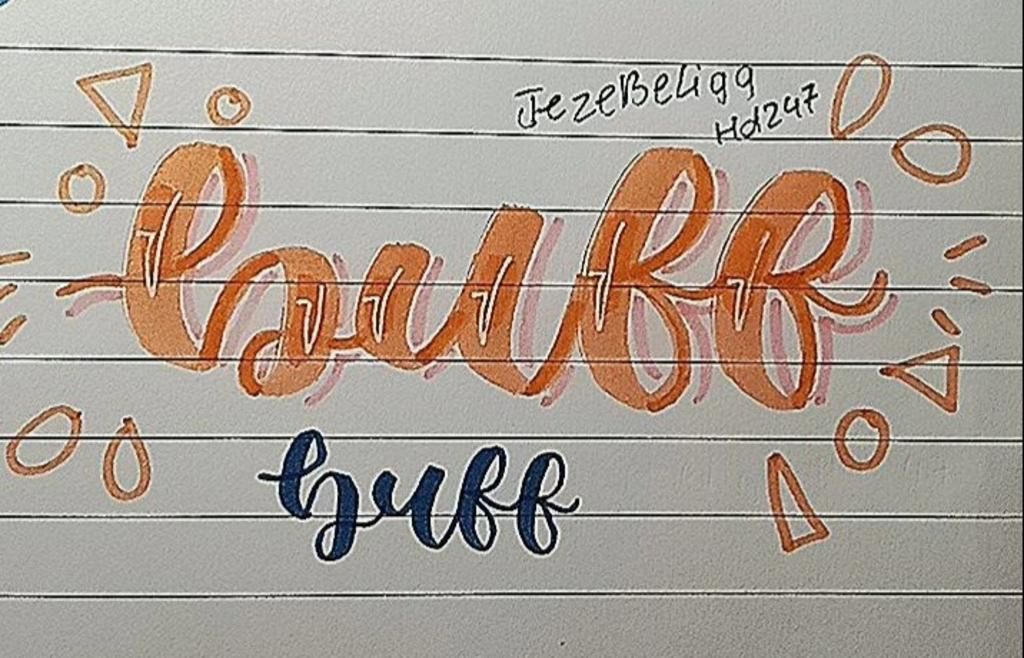 JezeBeli99
Hd247
huff
huff